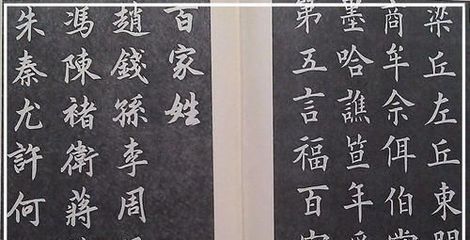 梁丘左丘東門
商牟佘佴伯
墨哈譙笪年
第五言福百家
百家姓
趙錢孫李周
馮陳褚衛蔣
朱秦尤許何